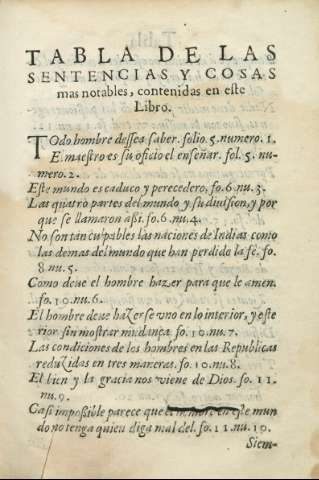 TABLA DE LAS
SENTENCIAS Y COSAS
mas notables, contenidas en este
Libro.
TOdo hombre dessea saber. folio. 5. numero. 1.
El maestro es su oficio el enseñar. fol. 5. nu-
mero. 2.
Este mundo es caduco y perecedero, fo. 6. nu. 3.
Las quatro partes del mundo y su diuision, y por
que se llamaron assi. fo. 6. nu. 4.
No son tan culpables las naciones de Indias como
las demas del mundo que han perdido la fé. fo.
8 nu. 5.
Como deue el hombre hazer para que le amen.
fo. 10. nu. 6.
El hombre deue hazerse vno en lo interior, y este
rior sin mostrar mudança. fo. 10. nu. 7.
Las condiciones de los hombres en las Republicas
reduzidas en tres maneras. fo. 10. nu. 8.
El bien y la gracia nos viene de Dios. fo. 11.
nu. 9.
Casi impossible parece que en este mun
do no tenga quien diga mal del. fo. 11. nu. 10.
Siem-